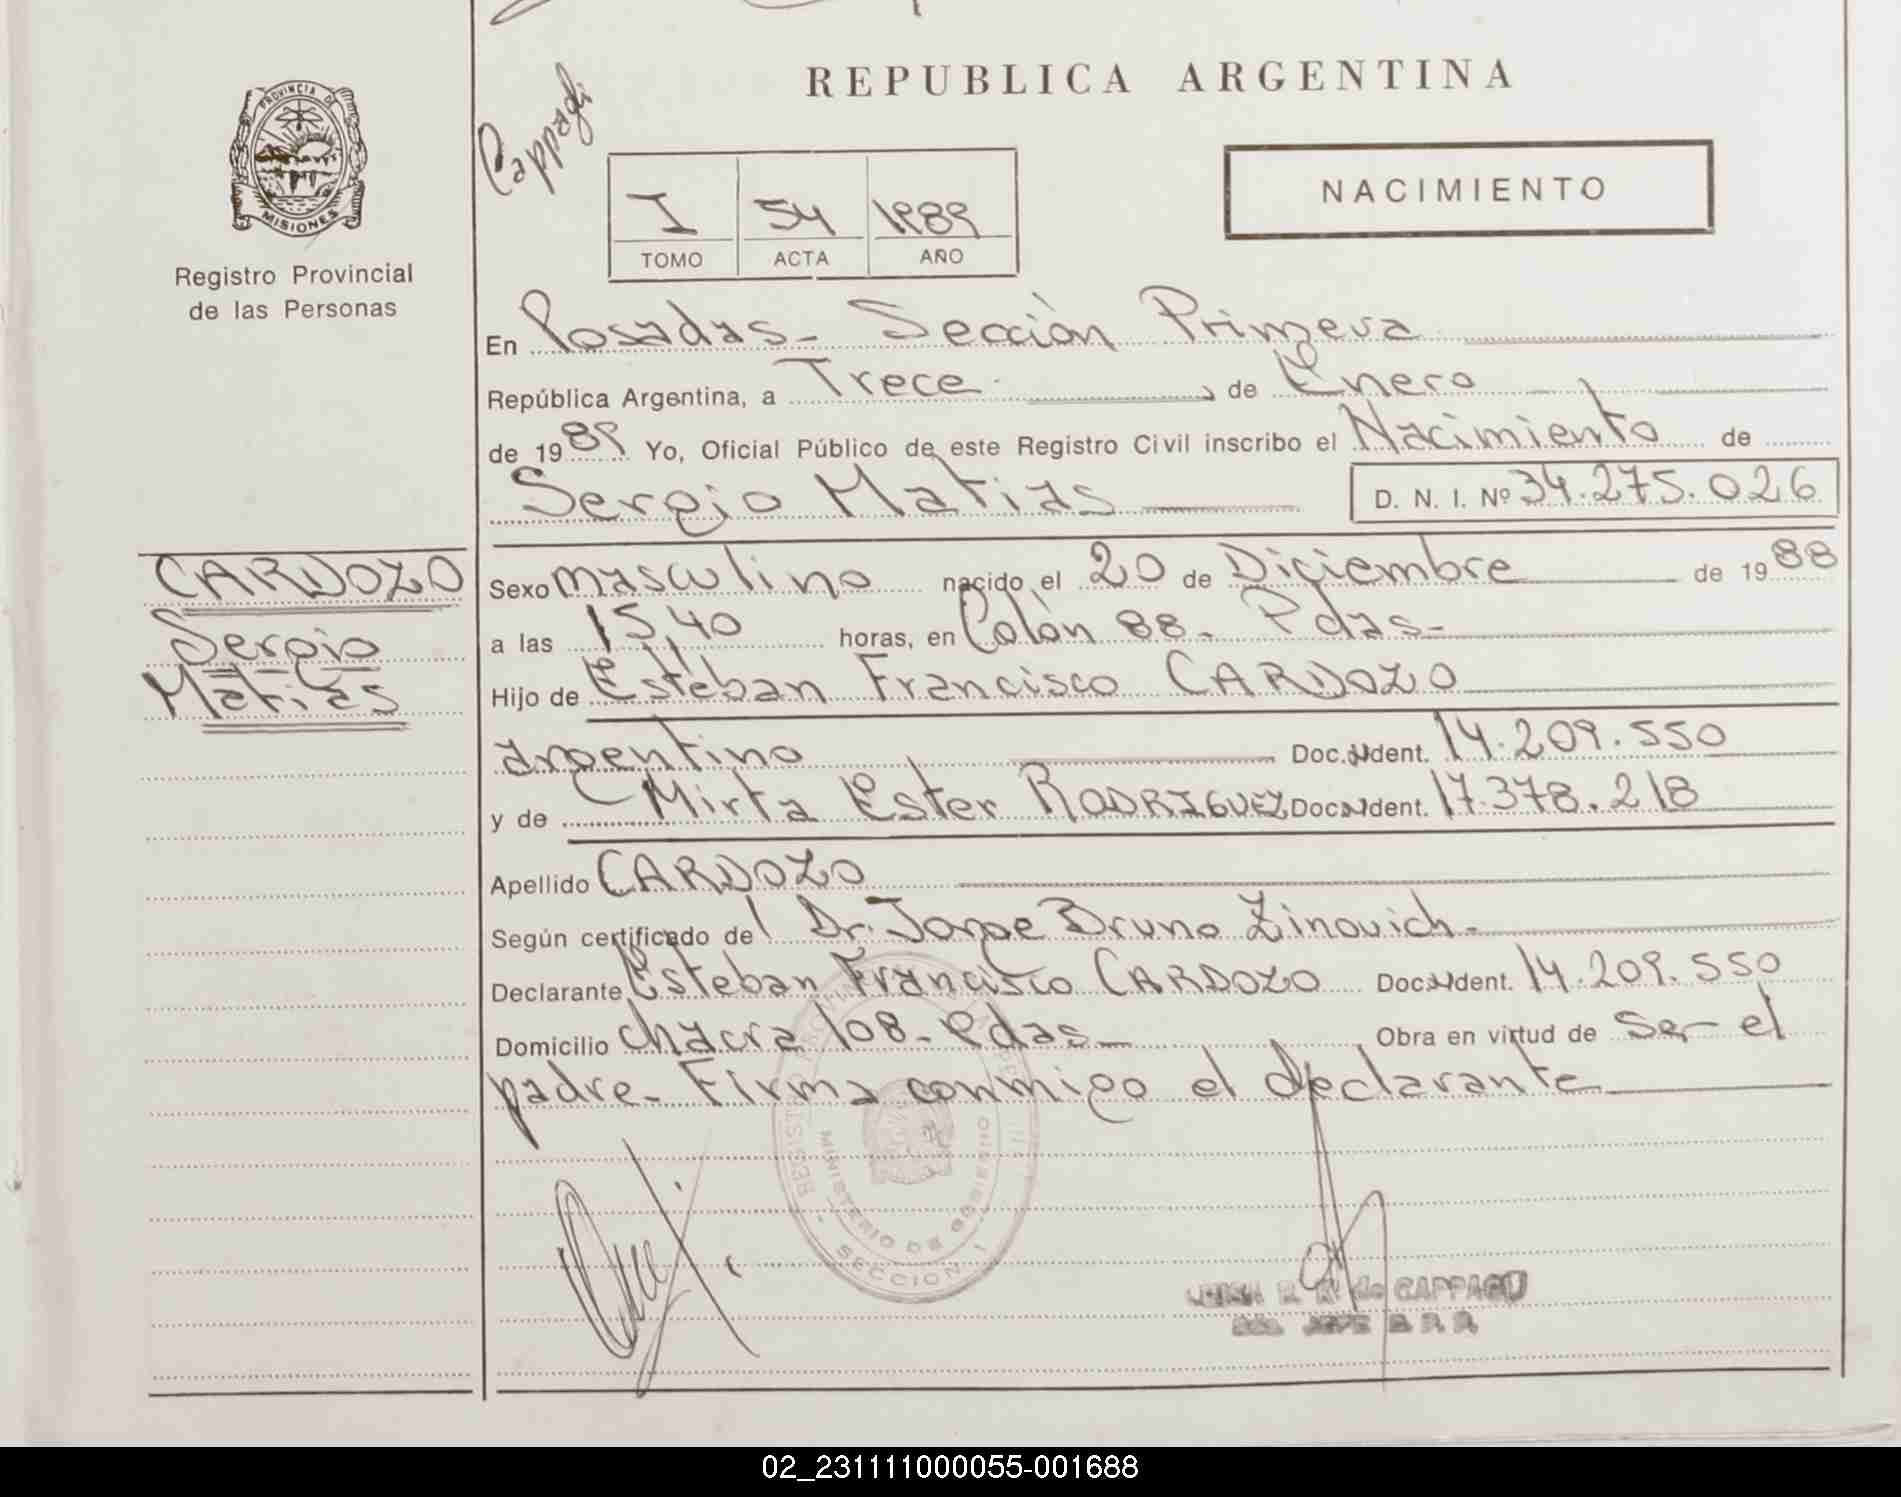 REPUBLICA ARGENTINA
PROVINCIA DE
MISIONES
Registro Provincial
de las Personas
NACIMIENTO
I 54 1989
TOMO ACTA AÑO
En Posadas - Sección Primera
República Argentina, a Trece de Enero
de 1989 Yo, Oficial Público de este Registro Civil inscribo el Nacimiento de
Sergio Matias D. N. I. Nº 34.275.026
CARDOZO
Sergio
Matias
Sexo masculino nacido el 20 de Diciembre de 1988
a las 15,40 horas, en Colón 88. Pdas-
Hijo de Esteban Francisco CARDOZO
argentino Doc. Ident. 14.209.550
y de Mirta Ester RODRIGUEZ Doc. Ident. 17.378.218
Apellido CARDOZO
Según certificado del Dr. Jorge Bruno Zinovich.
Declarante Esteban Francisco CARDOZO Doc. Ident. 14.209.550
Domicilio chacra 108- Pdas- Obra en virtud de ser el
padre- Firma conmigo el declarante
MINISTERIO DE GOBIERNO
SECCION 1
R. de CAPPAGLI
JEFE R. P. P.
02_231111000055-001688